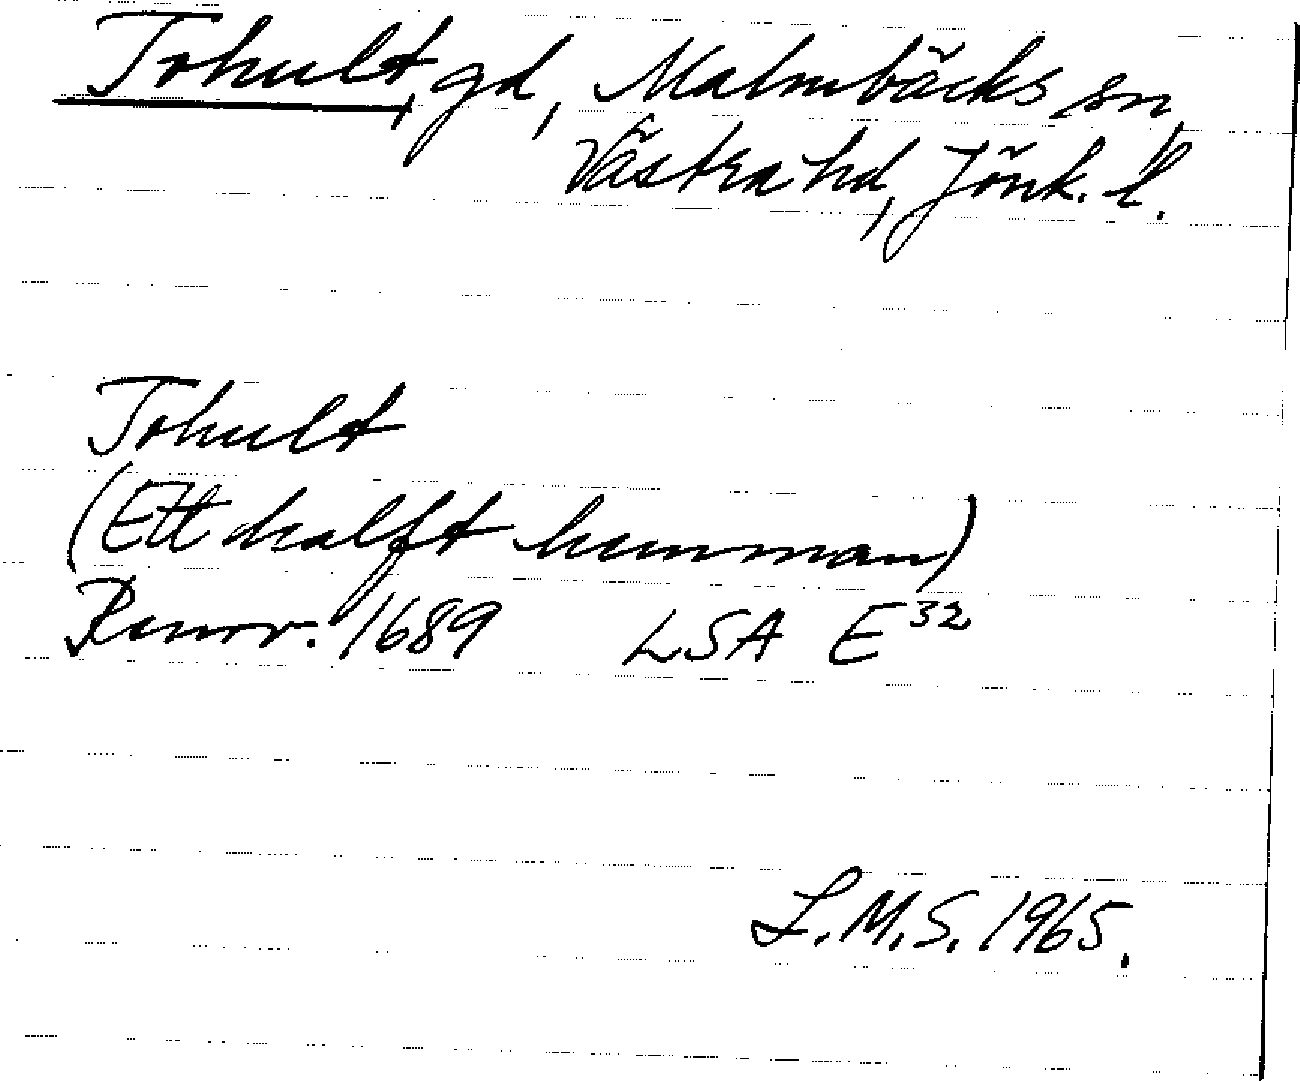 Tohult, gd, Malmbäcks sn,
Västra hd, Jönk. l.
Tohult
(Ett halft hemman)
Renov. 1689 LSA E32
L.M.S. 1965.